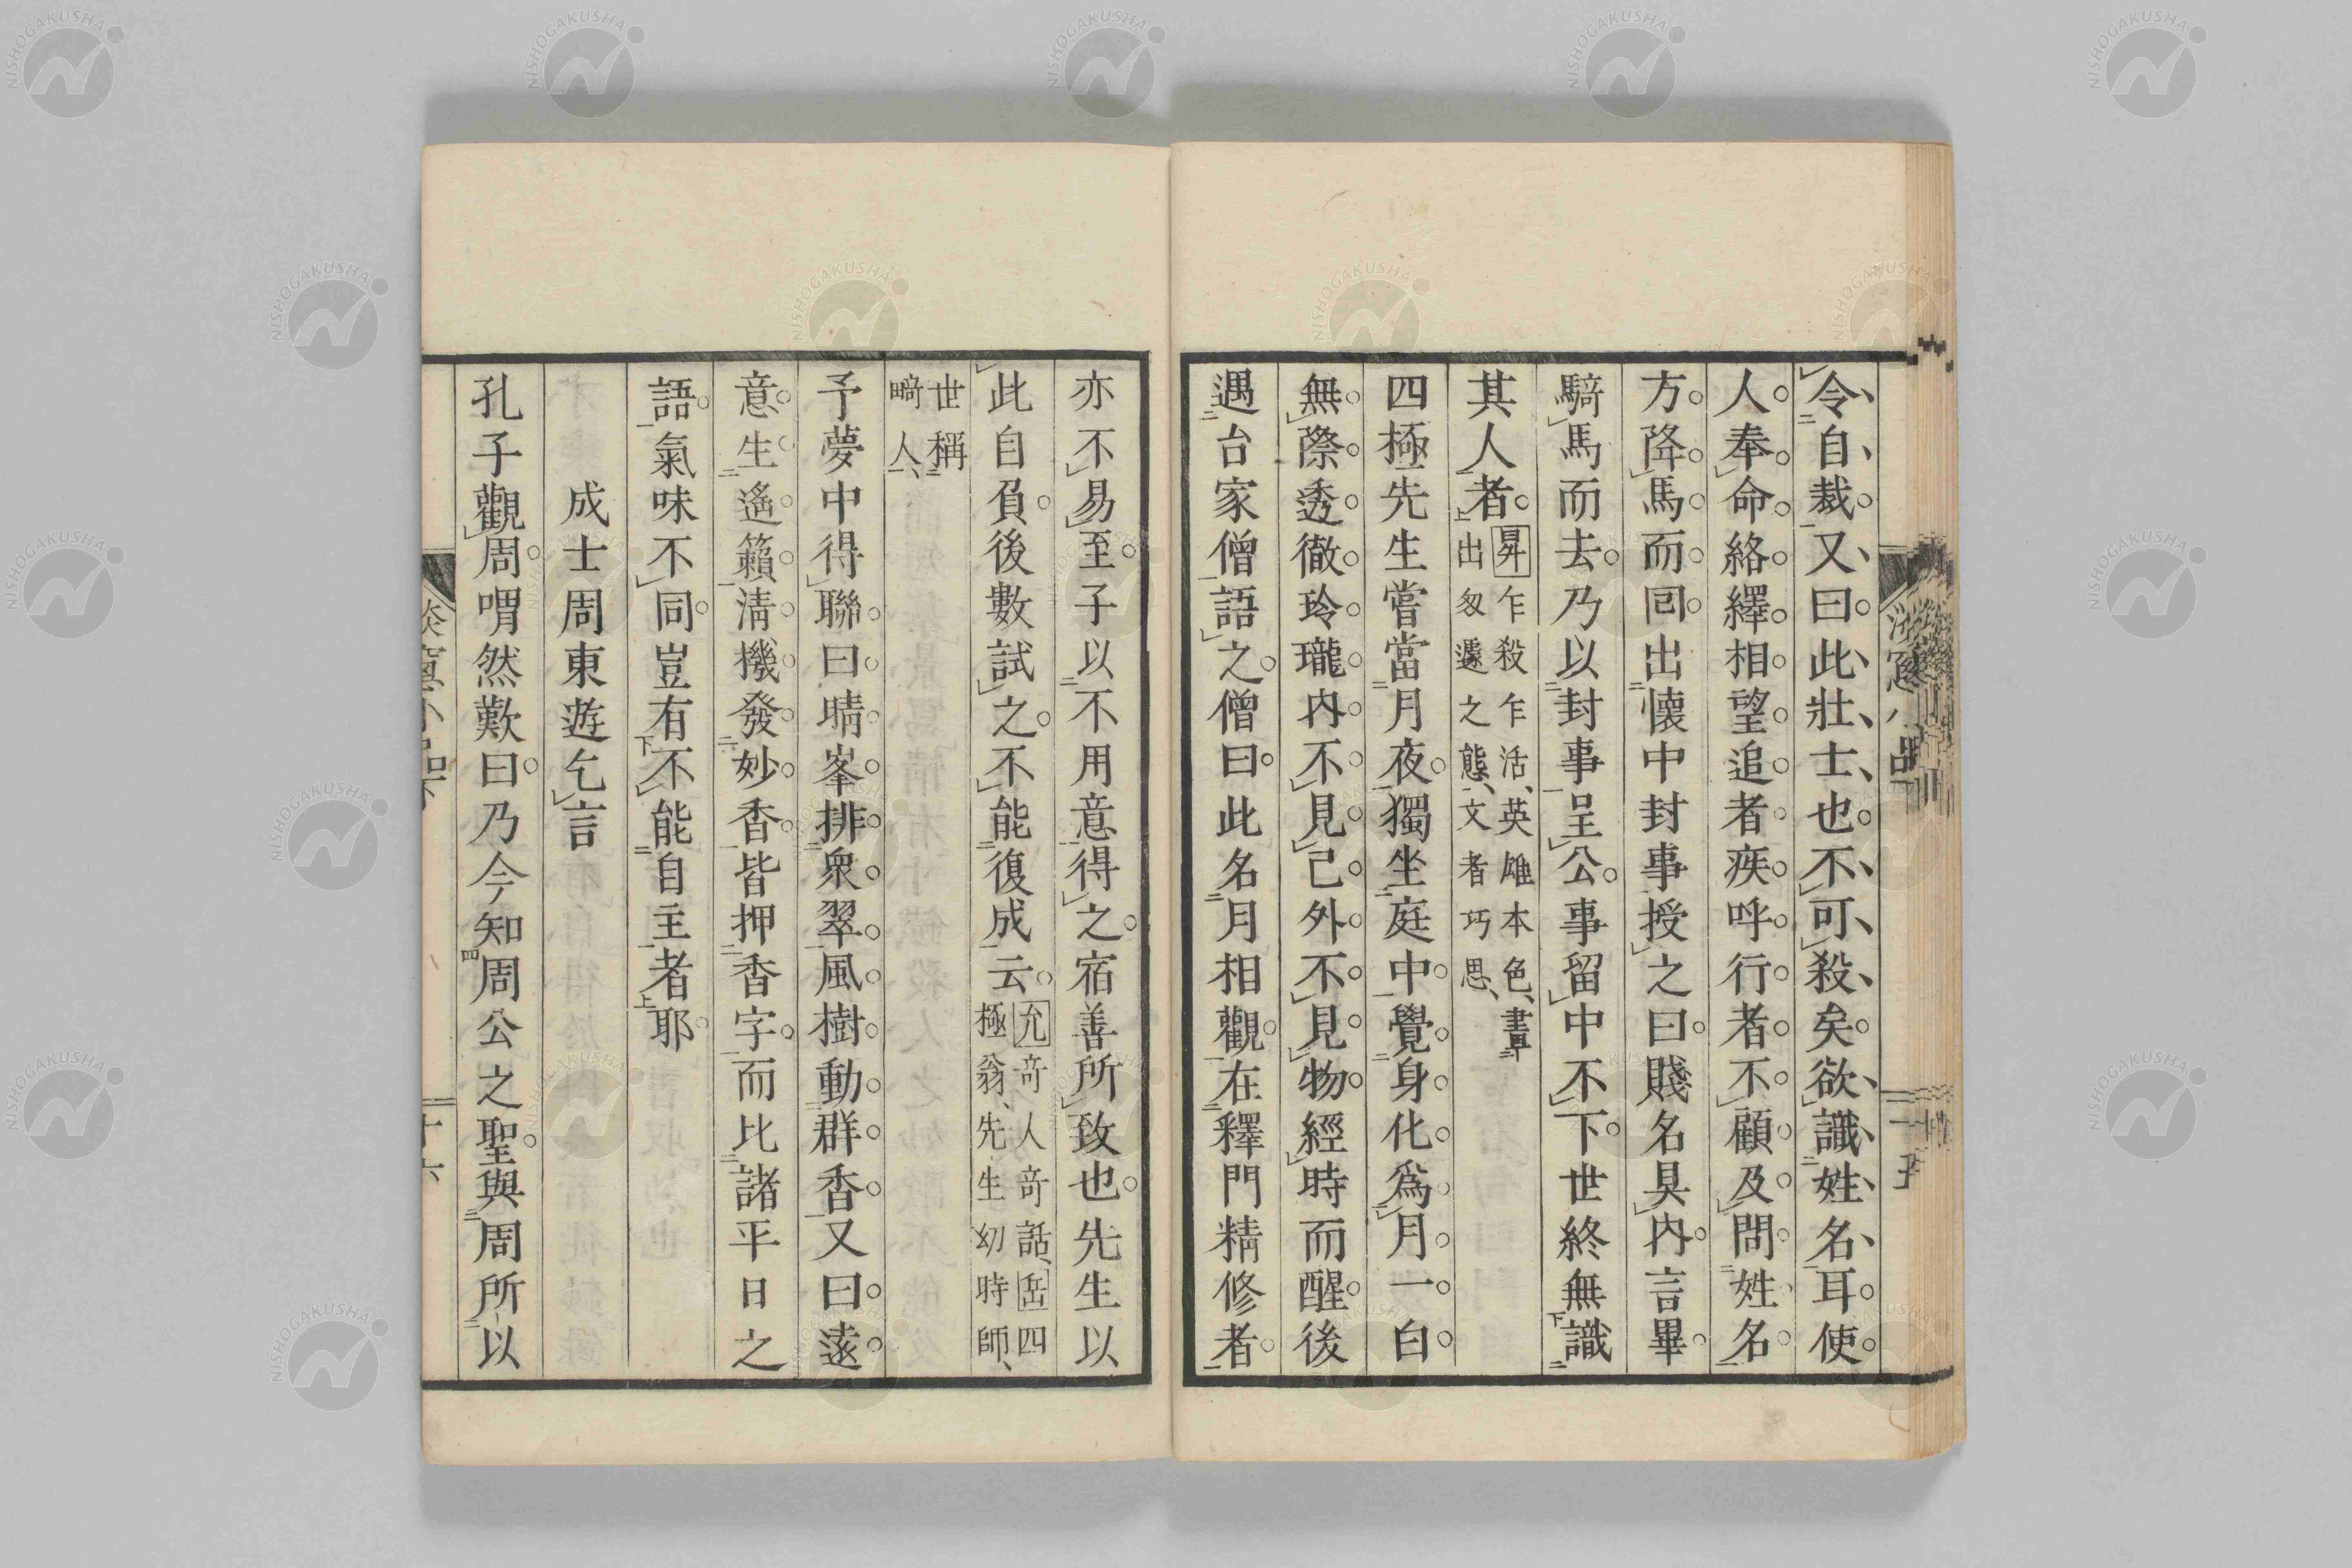 令自裁又曰此壯士也不可殺矣欲識姓名耳使
人奉命絡繹相望追者疾呼行者不顧及問姓名
方降馬而回出懷中封事授之曰賤名具內言畢
騎馬而去乃以封事呈公事留中不下世終無識
其人者昇乍殺乍活英雄本色畫
出匆遽之態文者巧思
四極先生嘗當月夜獨坐庭中覺身化爲月一白
無際透徹玲瓏內不見己外不見物經時而醒後
遇台家僧語之僧曰此名月相觀在釋門精修者
亦不易至子以不用意得之宿善所致也先生以
此自負後數試之不能復成云允奇人奇話岳四
極翁先生幼時師
世稱
畸人
予夢中得聯曰晴峯排衆翠風樹動群香又曰遠
意生遙籟淸機發妙香皆押香字而比諸平日之
語氣味不同豈有不能自主者耶
成士周東遊乞言
孔子觀周喟然歎曰乃今知周公之聖與周所以
十六
NISHOGAKUSHA